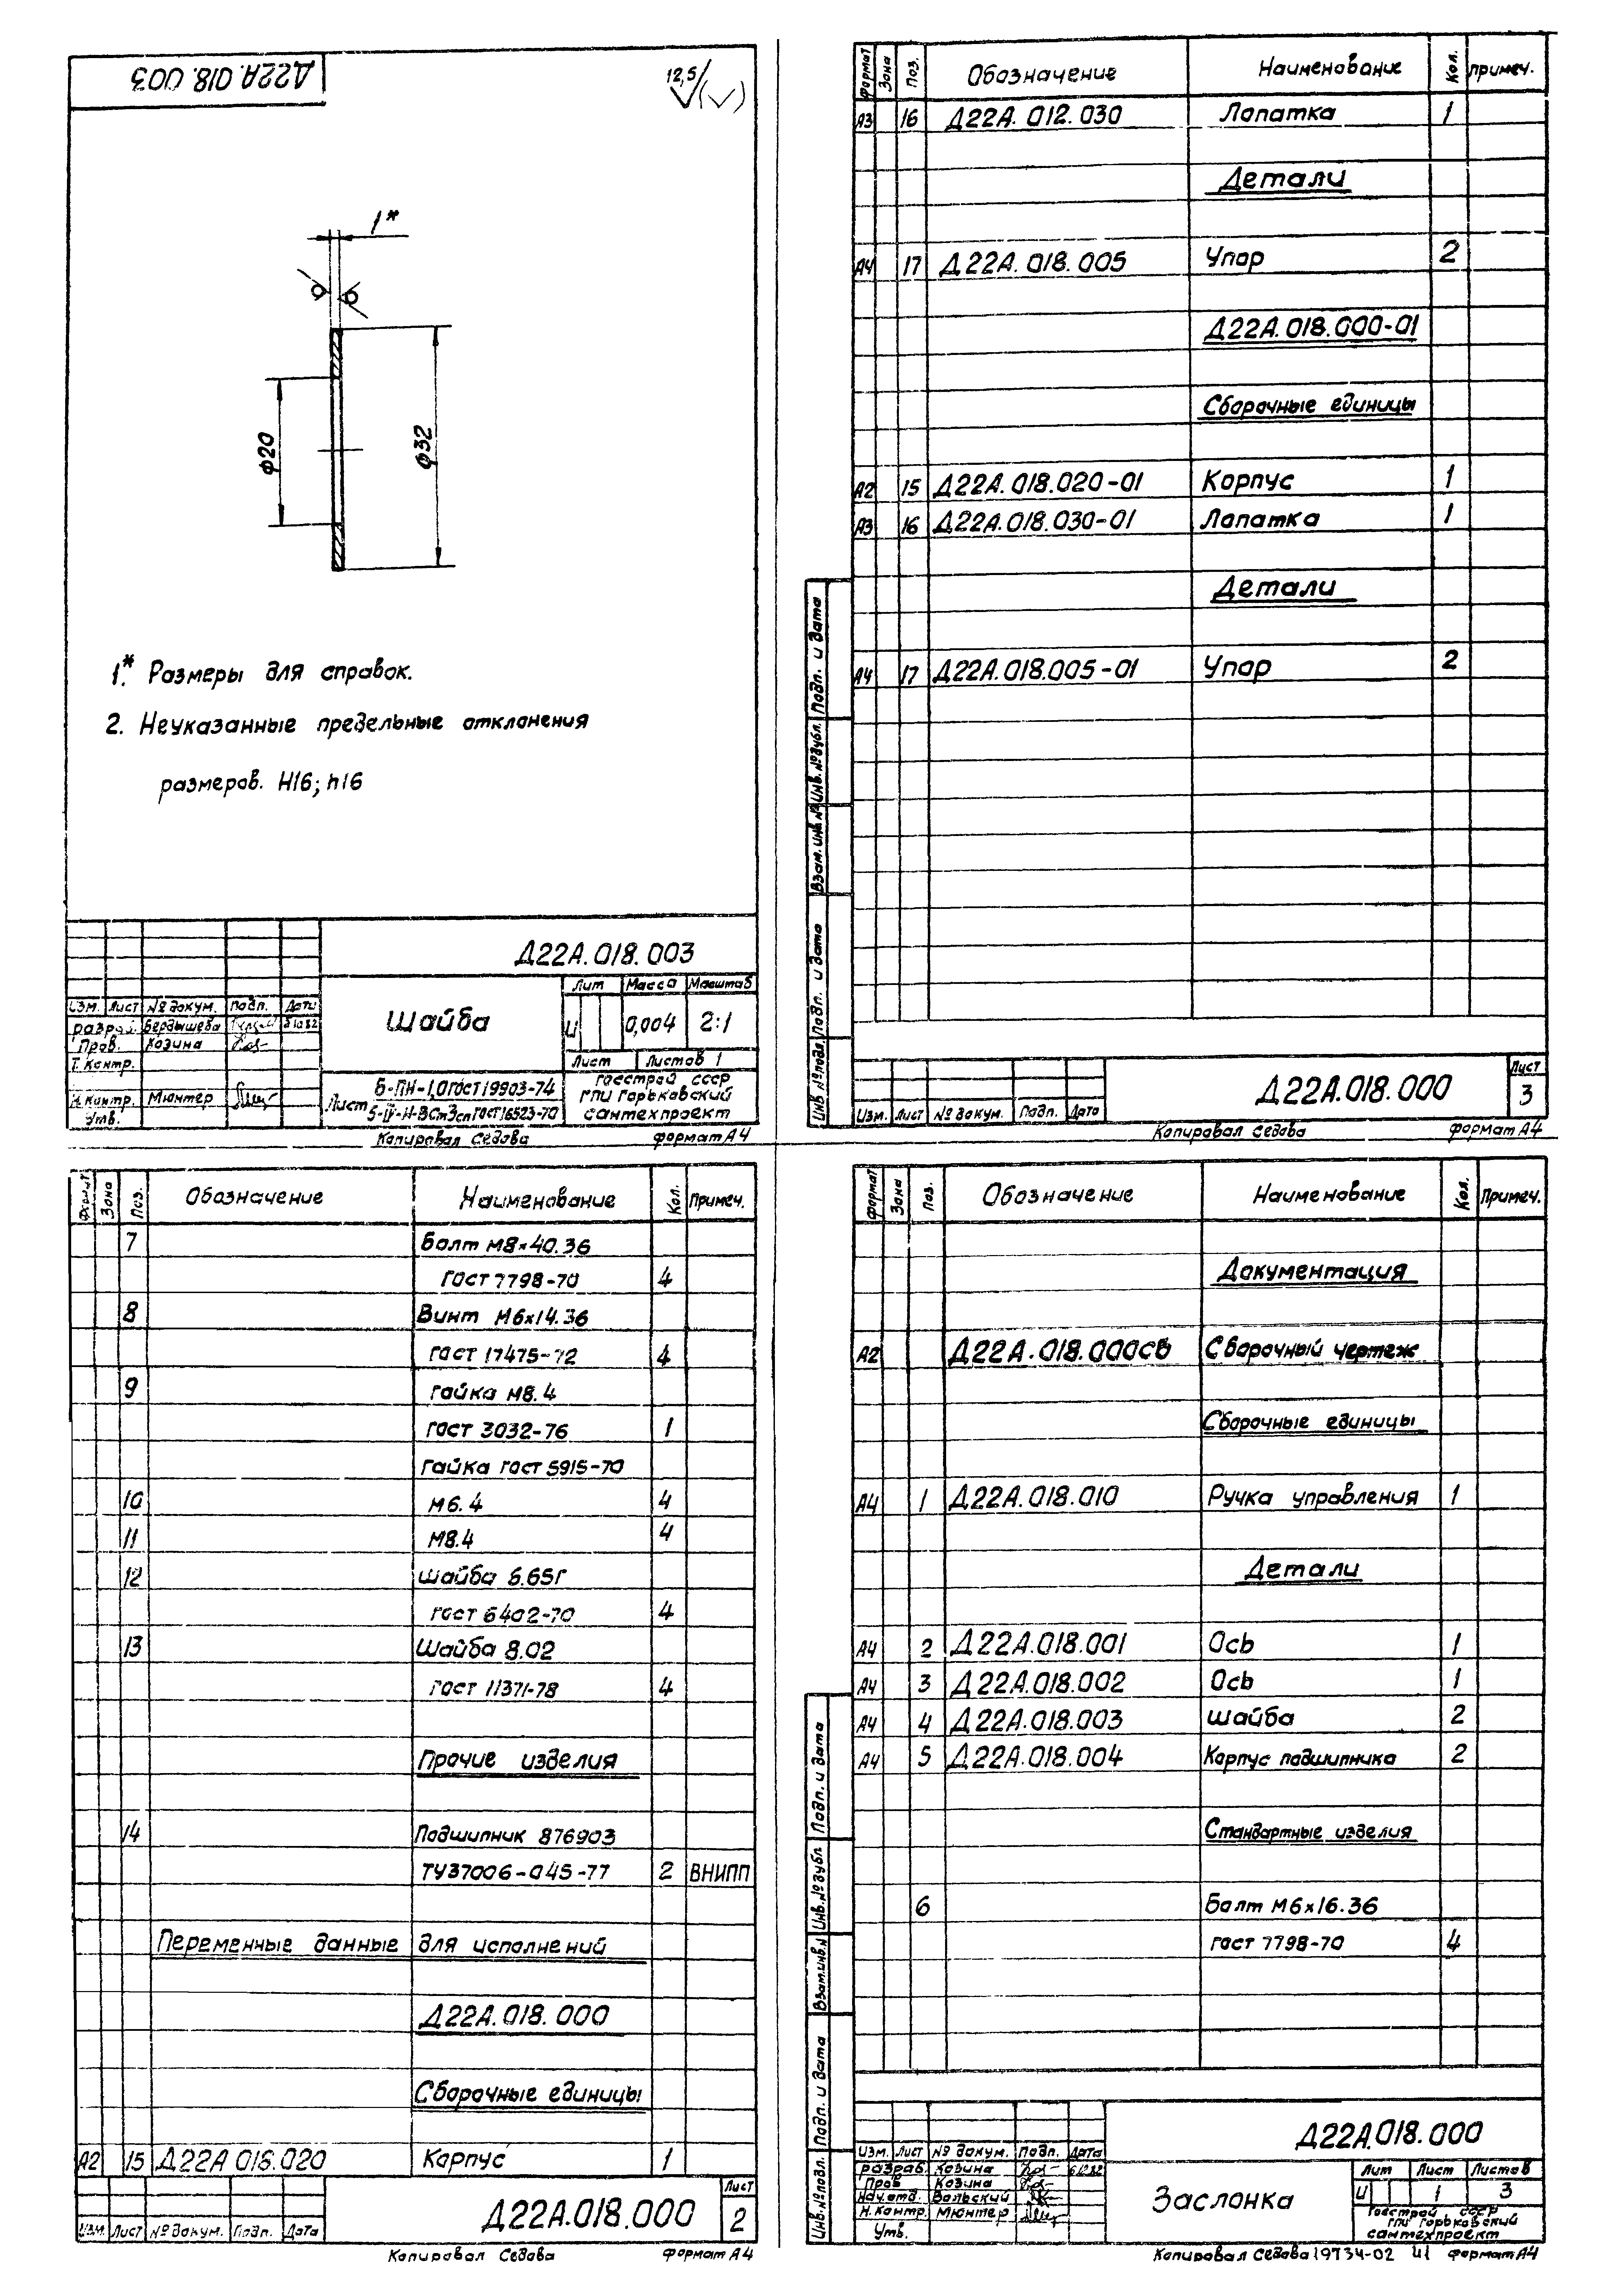 Д22А.018.003
12,5 (✓)
1*
ф20
ф32
1.* Размеры для справок.
2. Неуказанные предельные отклонения
размеров. H16; h16
Д22А.018.003
Изм. Лист № докум. Подп. Дата
Разраб. Бердышева
Пров. Козина
Т. контр.
Н. контр. Мюнтер
Утв.
Шайба
Лит Масса Масштаб
И 0,004 2:1
Лист Листов 1
Лист
Б-ПН-1,0 ГОСТ 19903-74
5-IV-Н-ВСт3сп ГОСТ 16523-70
Госстрой СССР
ГПИ Горьковский
сантехпроект
Копировал Седова формат А4
Формат Зона Поз. Обозначение Наименование Кол. Примеч.
А3 16 Д22А.012.030 Лопатка 1
Детали
А4 17 Д22А.018.005 Упор 2
Д22А.018.000-01
Сборочные единицы
А2 15 Д22А.018.020-01 Корпус 1
А3 16 Д22А.018.030-01 Лопатка 1
Детали
А4 17 Д22А.018.005-01 Упор 2
Подп. и дата
Инв. № дубл.
Взам. инв. №
Подп. и дата
Инв. № подл.
Изм. Лист № докум. Подп. Дата
Д22А.018.000
Лист
3
Копировал Седова формат А4
Формат Зона Поз. Обозначение Наименование Кол. Примеч.
7 Болт М8×40.36
ГОСТ 7798-70 4
8 Винт М6×14.36
ГОСТ 17475-72 4
9 Гайка М8.4
ГОСТ 3032-76 1
Гайка ГОСТ 5915-70
10 М6.4 4
11 М8.4 4
12 Шайба 6.65Г
ГОСТ 6402-70 4
13 Шайба 8.02
ГОСТ 11371-78 4
Прочие изделия
14 Подшипник 876903
ТУ37006-045-77 2 ВНИПП
Переменные данные для исполнений
Д22А.018.000
Сборочные единицы
А2 15 Д22А 018.020 Корпус 1
Изм. Лист № докум. Подп. Дата
Д22А.018.000
Лист
2
Копировал Седова формат А4
Формат Зона Поз. Обозначение Наименование Кол. Примеч.
Документация
А2 Д22А.018.000СБ Сборочный чертеж
Сборочные единицы
А4 1 Д22А.018.010 Ручка управления 1
Детали
А4 2 Д22А.018.001 Ось 1
А4 3 Д22А.018.002 Ось 1
А4 4 Д22А.018.003 Шайба 2
А4 5 Д22А.018.004 Корпус подшипника 2
Стандартные изделия
6 Болт М6×16.36
ГОСТ 7798-70 4
Подп. и дата
Инв. № дубл
Взам. инв. №
Подп. и дата
Инв. № подл.
Д22А.018.000
Изм. Лист № докум. Подп. Дата
Разраб. Козина
Пров Козина
Нач. отд. Вольский
Н. контр. Мюнтер
Утв.
Заслонка
Лит Лист Листов
И 1 3
Госстрой СССР
ГПИ Горьковский
сантехпроект
Копировал Седова 19734-02 41 формат А4